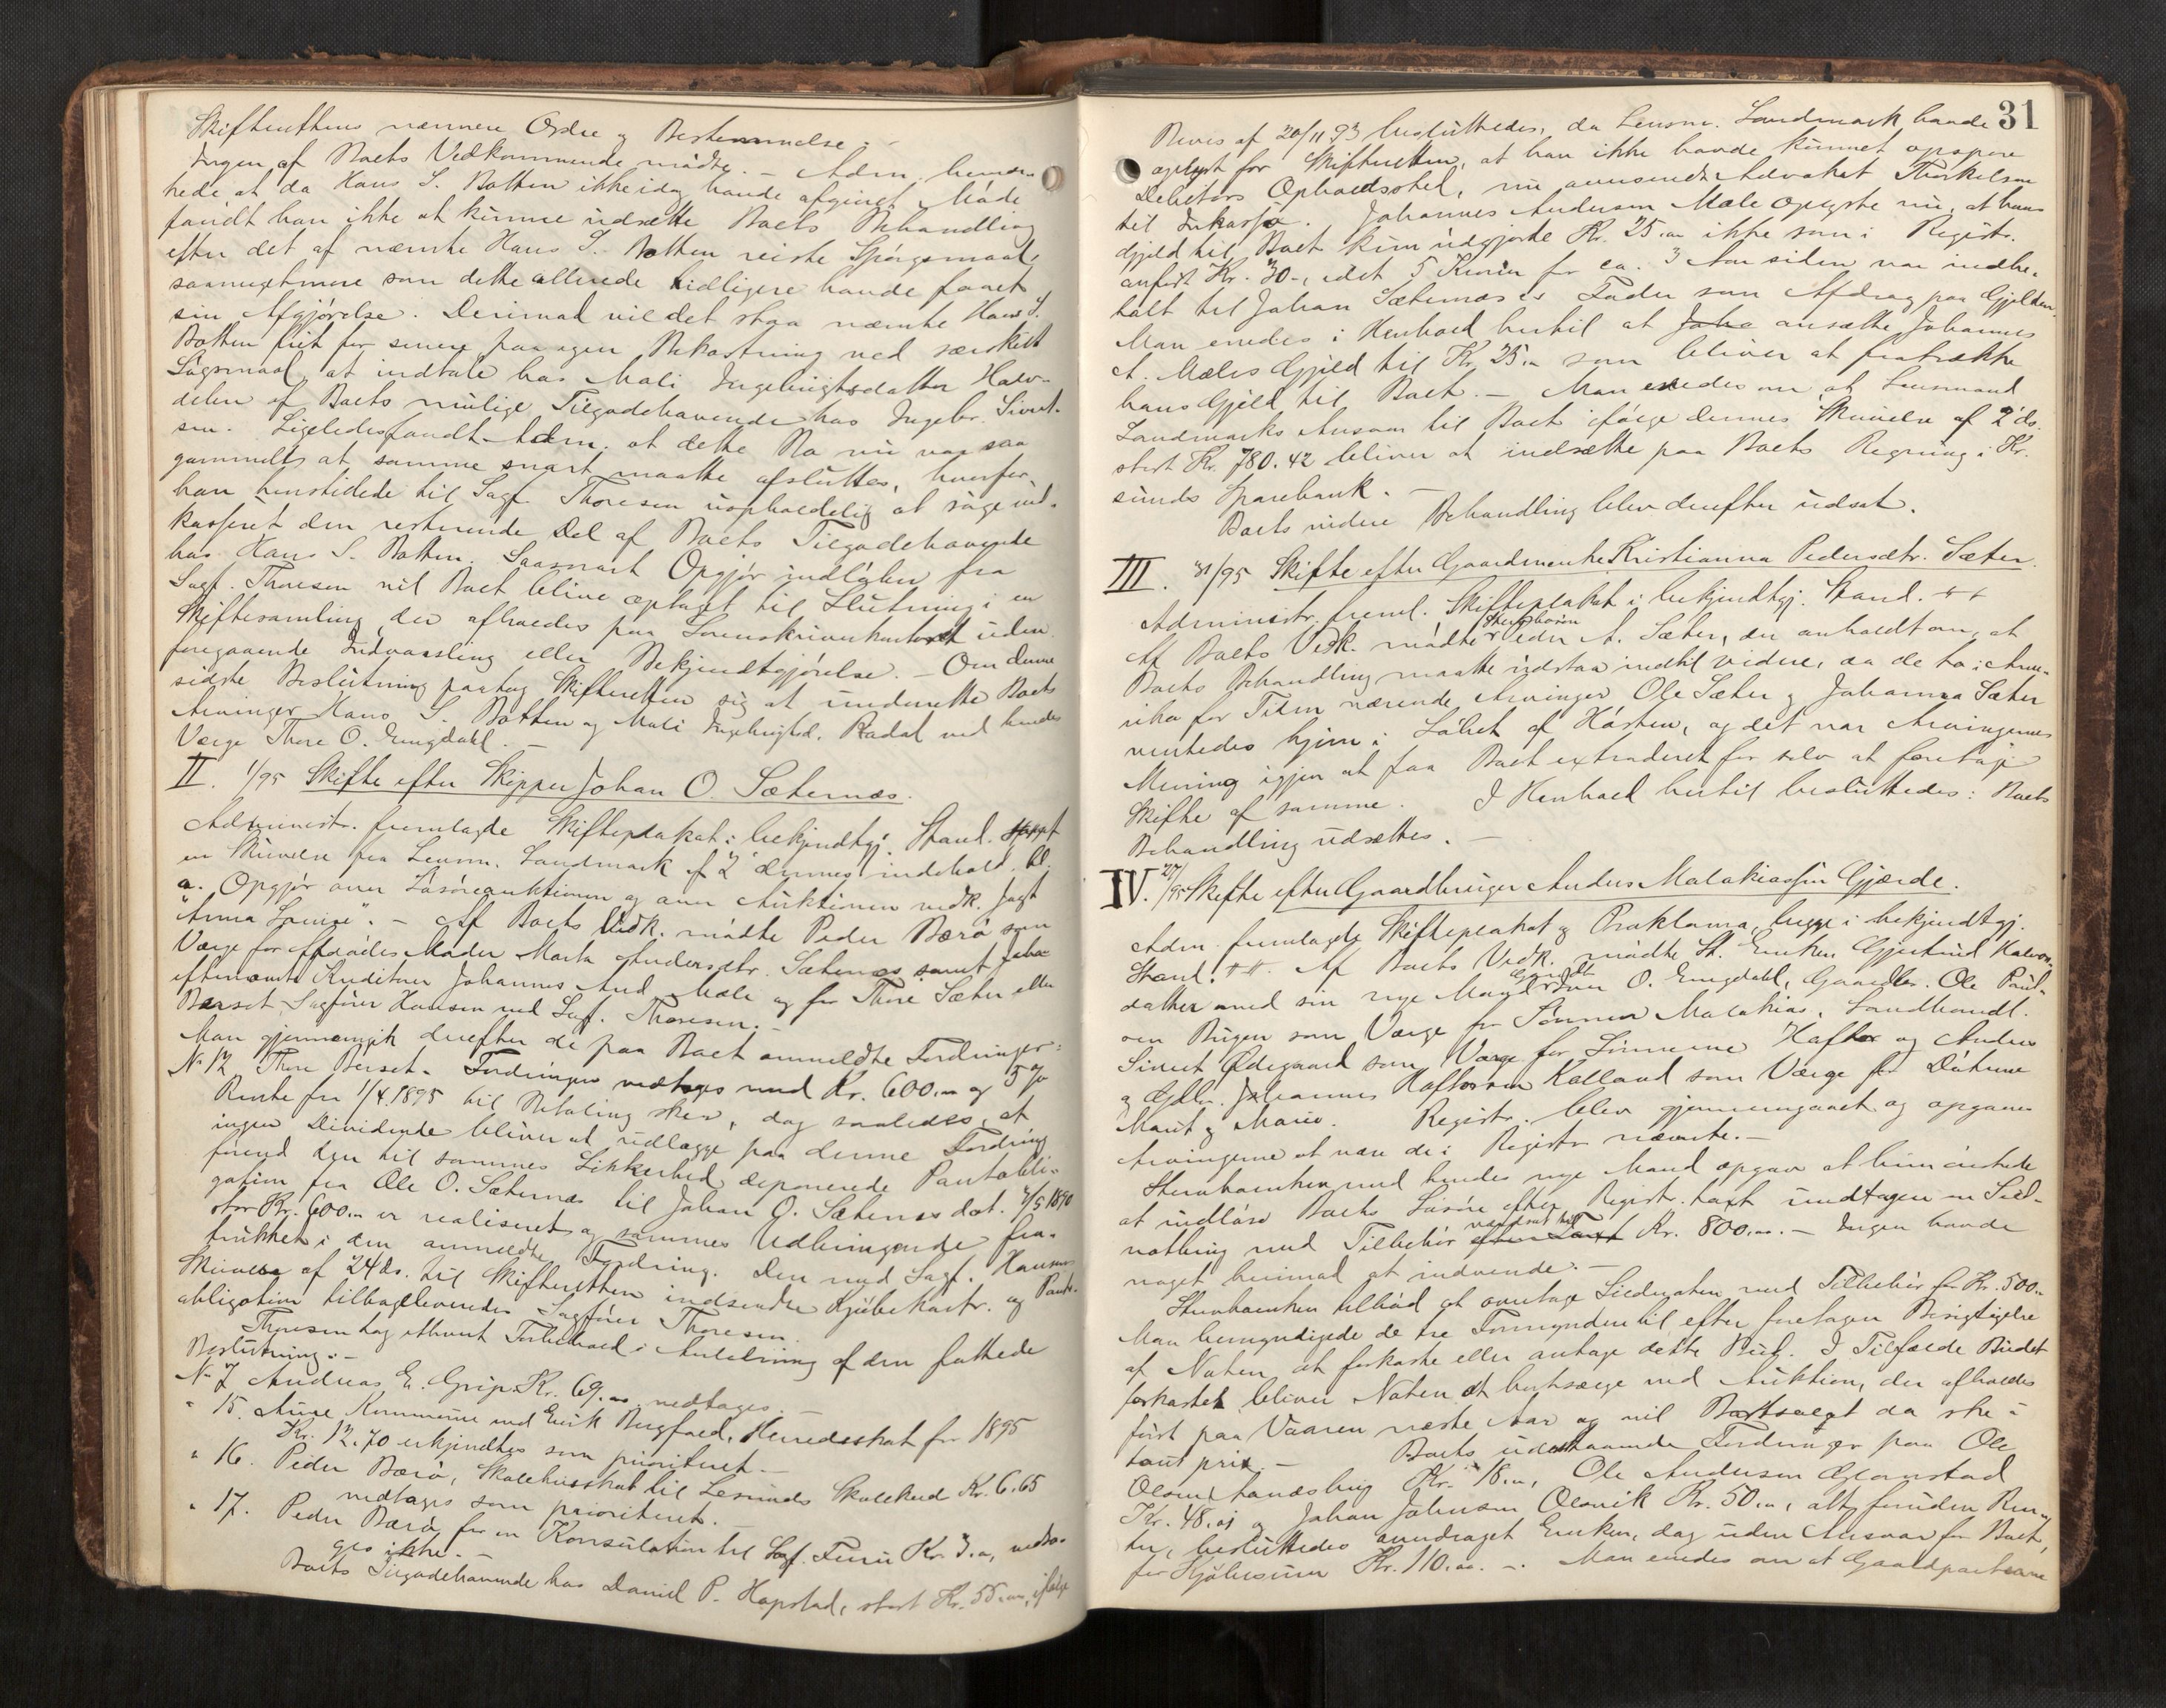 Skifterettens nærmere Ordre og Bestemmelse. -
Ingen af Boets Vedkommende mødte. - Adm. bemær-
kede at da Hans S. Botten ikke idag havde afgivet Møde
fandt han ikke at kunne udsætte Boets Behandling
efter det af nævnte Hans S. Botten reiste Spørgsmaal,
saameget mere som dette allerede tidligere havde faaet
sin Afgjørelse. Derimod vil det staa nævnte Hans S.
Botten frit for senere paa egen Bekostning ved særskilt
Søgsmaal at indtale hos Mali Ingebrigtsdatter Halv-
delen af Boets mulige Tilgodehavende hos Ingebr. Sivert-
sen. Ligeledes fandt Adm. at dette Bo nu var saa
gammelt, at samme snart maatte afsluttes, hvorfor
han henstillede til Sagf. Thoresen uopholdelig at søge ind-
kasseret den resterende Del af Boets Tilgodehavende
hos Hans S. Botten. Saasnart Opgjør indløber fra
Sagf. Thoresen vil Boet blive optaget til Slutning i en
Skiftesamling der afholdes paa Sorenskriverkontoret uden
foregaaende Indvarsling eller Bekjendtgjørelse. - Om denne
sidste Beslutning paatog Skifteretten sig at underrette Boets
Arvinger Hans S. Botten og Mali Ingebrigtsd. Radal ved hendes
Værge Thore O. Engdahl. -
II. 1/95 Skifte efter Skipper Johan O. Sæternæs.
Administr. fremlagde Skifteplakat i bekjendtgj. Stand. samt
en Skrivelse fra Lensm. Landmark af 2 dennes indehold. bl.
a. Opgjør over Løsøreauktionen og over Auktionen vedk. Jagt
"Anna Lovise". - Af Boets Vedk. mødte Peder Bærø som
Værge for Afdødes Moder Marta Andersdtr. Sæternæs samt Joha
efternævnte Kreditorer Johannes And. Mæle og for Thore Sæter eller
Berset Sagfører Hansen ved Sagf. Thoresen. -
Man gjennemgik derefter de paa Boet anmeldte Fordringer:
No 12 Thore Berset. Fordringen vedtages med Kr. 600.00 og 5 %
Rente fra 1/4 1895 til Betaling sker, dog saaledes, at
ingen Dividende bliver at udlægge paa denne Fordring
førend den til sammes Sikkerhed deponerede Pantobli-
gation fra Ole O. Sæternæs til Johan O. Sæternæs dat. 7/5 1890
stor Kr. 600.00 er realiseret og sammes Udbringende fra-
trukket i den anmeldte Fordring. Den med Sagf. Hansens
Skrivelse af 24 ds. til Skifteretten indsendte Kjøbekontr. og Pant-
obligation tilbageleveredes Sagfører Thoresen.
Thoresen tog ethvert Forbehold i Anledning af den fattede
Beslutning. -
No 7 Andreas E. Grip Kr. 69.00 vedtages. -
" 15. Aure Kommune ved Enik Bugfaed, Herredsskat for 1895
Kr. 12.70 erkjendtes som prioriteret. -
" 16. Peder Bærø, Skolehusskat til Lesunds Skolekred Kr. 6.65
vedtages som prioriteret. -
" 17. Peder Bærø for en Konsulation til Sagf. Furu Kr. 3.00, vedta-
ges ikke. -
Boets Tilgodehavende hos Daniel P. Hopstad, stort Kr. 55.00, ifølge
31
Bevis af 20/11 93 besluttedes, da Lensm. Landmark havde
oplyst for Skifteretten, at han ikke havde kunnet opspore
Debitors Opholdssted, nu anmodet Advokat Thorkelsen
til Inkasso. Johannes Andersen Mæle oplyste nu, at hans
Gjæld til Boet kun udgjorde Kr. 25.00 ikke som i Registr.
anført Kr. 30-, idet 5 Kroner for ca. 3 Aar siden var indbe-
talt til Johan Sæternæs's Fader som Afdrag paa Gjælden.
Man enedes i Henhold hertil at Joha ansætte Johannes
A. Mæles Gjæld til Kr. 25.00 som bliver at fratrække
hans Gjæld til Boet. - Man enedes om at Lensmand
Landmarks Ansvar til Boet ifølge dennes Skrivelse af 2 ds.
stort Kr. 780.42 bliver at indsætte paa Boets Regning i Kr.
sunds Sparebank. -
Boets videre Behandling blev derefter udsat.
III. 31/95 Skifte efter Gaardmandsenke Kristianna Pedersdtr. Sæter.
Administr. freml. Skifteplakat i bekjendtgj. Stand. ++
Af Boets Vedk. mødte Stenbøren Peder A. Sæter, der anholdt om, at
Boets Behandling maatte udstaa indtil videre, da de to i Ame-
rika for Tiden værende Arvinger Ole Sæter og Johanna Sæter
ventedes hjem i Løbet af Høsten, og det var Arvingernes
Mening igjen at faa Boet extraderet for selv at foretage
Skifte af samme. I Henhold hertil besluttedes: Boets
Behandling udsættes. -
IV. 27/95 Skifte efter Gaardbruger Anders Malakiassen Gjærde.
Adm. fremlagde Skifteplakat og Proklama, begge i bekjendtgj.
Stand. ++. Af Boets Vedk. mødte St. Enken Gjertrud Halvor-
datter med sin nye Mand Arndt Iver O. Engdahl, Gaardbr. Ole Paul-
sen Bugen som Værge for Sønnen Malakias, Landhandl.
Sivert Ødegaard som Værge for Sønnerne Haftor og Anders
og Gdbr. Johannes Haftorsen Kalland som Værge for Døtrene
Marit og Marie. Registr. blev gjennemgaaet og opgaves
Arvingerne at være de i Registr. nævnte. -
Stervboenken med hendes nye Mand opgav at hun ønskede
at indløse Boets Løsøre efter Registr. taxt undtagen en Sild-
notbrug med Tilbehør værdsat til efter Taxt Kr. 800.00. - Ingen havde
noget herimod at indvende. -
Stervboenken tilbød at overtage Sildenoten med Tilbehør for Kr. 500.00
Man bemyndigede de tre Formyndere til efter foretagen Besigtigelse
af Noten at forkaste eller antage dette Bud. I Tilfælde Budet
forkastet bliver Noten at bortsælge ved Auktion, der afholdes
først paa Vaaren næste Aar og vil Bortsalget da ske i
tout prix. - Boets udestaaende Fordringer paa Ole
Olsen Handsbug Kr. 18.00, Ole Andersen Gjønstad
Kr. 48.01 og Johan Johnsen Olsvik Kr. 50.00, alt foruden Ren-
ter, besluttedes overdraget Enken, dog uden Ansvar for Boet,
for Kjøbesum Kr. 110.00. -. Man enedes om at Gaardparterne